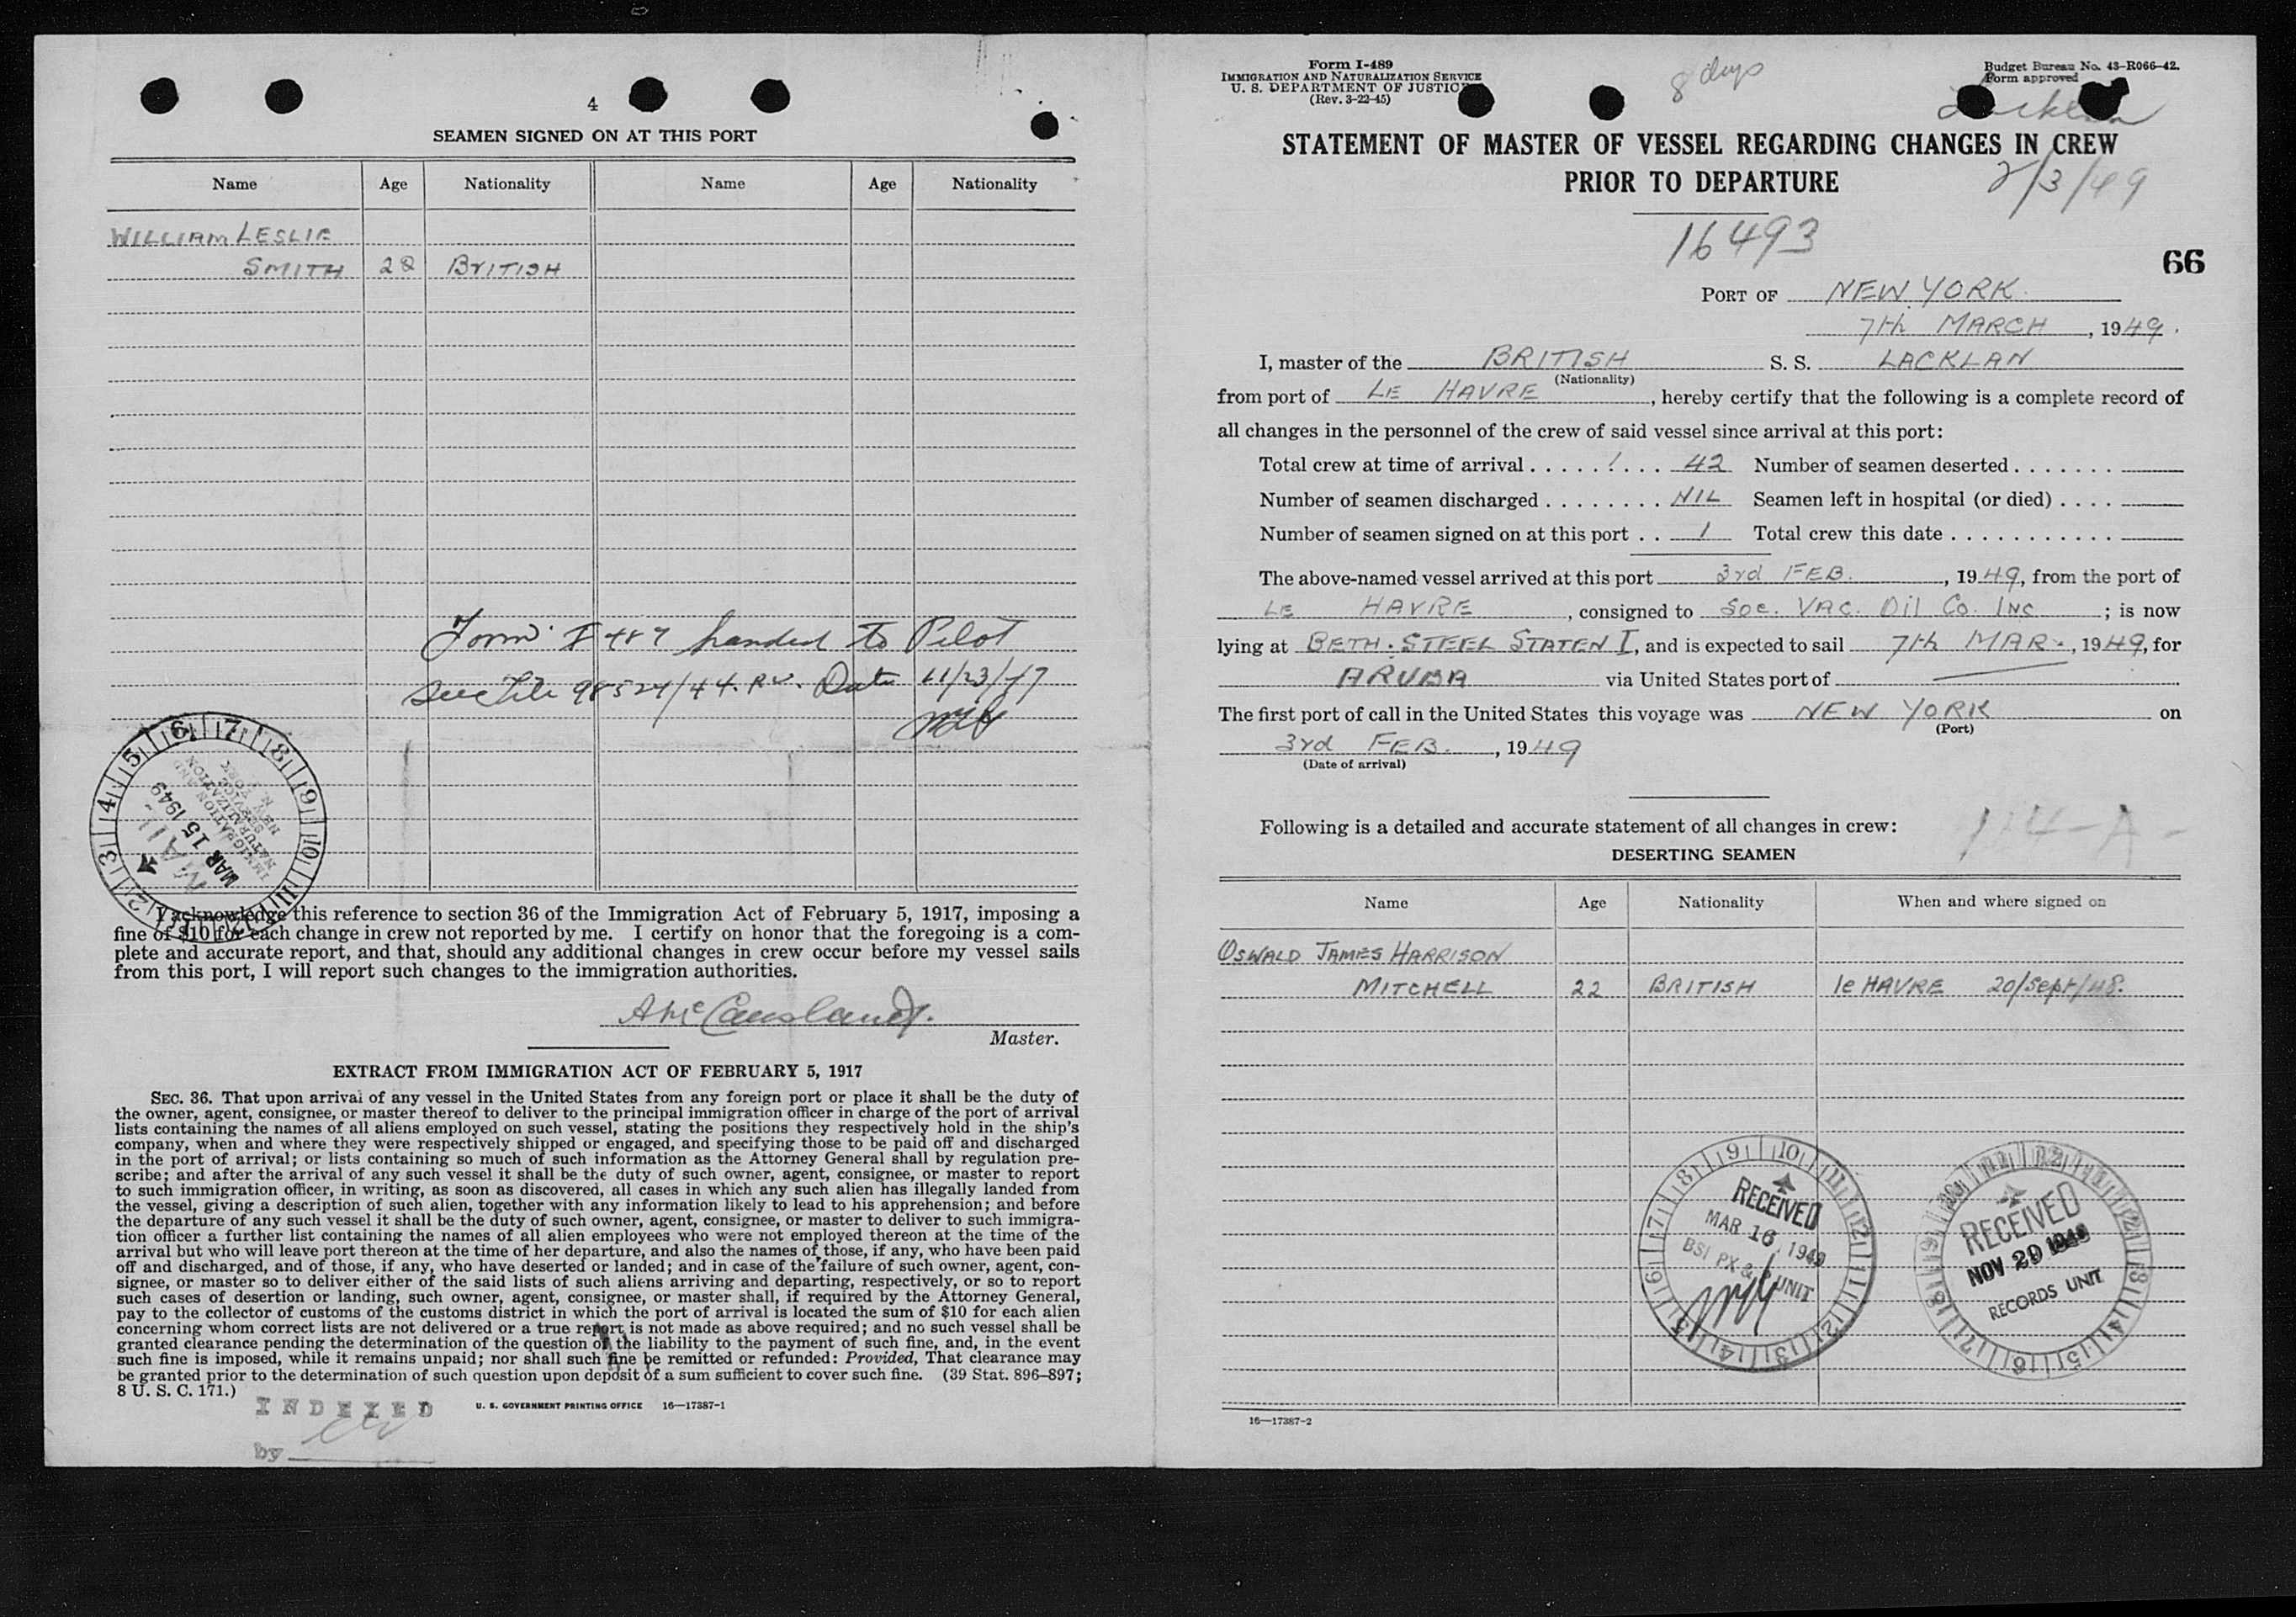 4
SEAMEN SIGNED ON AT THIS PORT
Name Age Nationality Name Age Nationality
WILLIAM LESLIE
SMITH 28 BRITISH
Form I 489 handed to Pilot
See File 98524/44. P.V. Date 11/23/47
IMMIGRATION AND
NATURALIZATION
SERVICE
NEW YORK, N. Y.
MAR 15 1949
MAIL
I acknowledge this reference to section 36 of the Immigration Act of February 5, 1917, imposing a
fine of $10 for each change in crew not reported by me. I certify on honor that the foregoing is a com-
plete and accurate report, and that, should any additional changes in crew occur before my vessel sails
from this port, I will report such changes to the immigration authorities.
A McCausland
Master.
EXTRACT FROM IMMIGRATION ACT OF FEBRUARY 5, 1917
SEC. 36. That upon arrival of any vessel in the United States from any foreign port or place it shall be the duty of
the owner, agent, consignee, or master thereof to deliver to the principal immigration officer in charge of the port of arrival
lists containing the names of all aliens employed on such vessel, stating the positions they respectively hold in the ship's
company, when and where they were respectively shipped or engaged, and specifying those to be paid off and discharged
in the port of arrival; or lists containing so much of such information as the Attorney General shall by regulation pre-
scribe; and after the arrival of any such vessel it shall be the duty of such owner, agent, consignee, or master to report
to such immigration officer, in writing, as soon as discovered, all cases in which any such alien has illegally landed from
the vessel, giving a description of such alien, together with any information likely to lead to his apprehension; and before
the departure of any such vessel it shall be the duty of such owner, agent, consignee, or master to deliver to such immigra-
tion officer a further list containing the names of all alien employees who were not employed thereon at the time of the
arrival but who will leave port thereon at the time of her departure, and also the names of those, if any, who have been paid
off and discharged, and of those, if any, who have deserted or landed; and in case of the failure of such owner, agent, con-
signee, or master so to deliver either of the said lists of such aliens arriving and departing, respectively, or so to report
such cases of desertion or landing, such owner, agent, consignee, or master shall, if required by the Attorney General,
pay to the collector of customs of the customs district in which the port of arrival is located the sum of $10 for each alien
concerning whom correct lists are not delivered or a true report is not made as above required; and no such vessel shall be
granted clearance pending the determination of the question of the liability to the payment of such fine, and, in the event
such fine is imposed, while it remains unpaid; nor shall such fine be remitted or refunded: Provided, That clearance may
be granted prior to the determination of such question upon deposit of a sum sufficient to cover such fine. (39 Stat. 896–897;
8 U. S. C. 171.)
INDEXED
by
U. S. GOVERNMENT PRINTING OFFICE 16—17387-1
Form I-489
IMMIGRATION AND NATURALIZATION SERVICE
U. S. DEPARTMENT OF JUSTICE
(Rev. 3-22-45)
8 days
Budget Bureau No. 43-R066-42.
Form approved
Lacklan
STATEMENT OF MASTER OF VESSEL REGARDING CHANGES IN CREW
PRIOR TO DEPARTURE
2/3/49
16493
66
PORT OF NEW YORK
7th MARCH, 1949.
I, master of the BRITISH S. S. LACKLAN
(Nationality)
from port of LE HAVRE, hereby certify that the following is a complete record of
all changes in the personnel of the crew of said vessel since arrival at this port:
Total crew at time of arrival 42 Number of seamen deserted
Number of seamen discharged NIL Seamen left in hospital (or died)
Number of seamen signed on at this port 1 Total crew this date
The above-named vessel arrived at this port 3rd FEB., 1949, from the port of
LE HAVRE, consigned to Soc. VAC. Oil Co. INC; is now
lying at BETH. STEEL STATEN I, and is expected to sail 7th MAR., 1949, for
ARUBA via United States port of
The first port of call in the United States this voyage was NEW YORK on
(Port)
3rd FEB., 1949
(Date of arrival)
Following is a detailed and accurate statement of all changes in crew:
114-A-
DESERTING SEAMEN
Name Age Nationality When and where signed on
OSWALD JAMES HARRISON
MITCHELL 22 BRITISH le HAVRE 20/Sept/48.
RECEIVED
MAR 16 1949
BSI PX & UNIT
RECEIVED
NOV 29 1949
RECORDS UNIT
16—17387-2